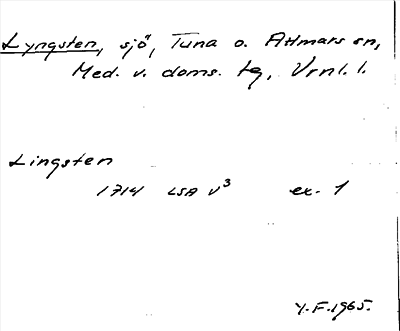 Lyngsten, sjö, Tuna o. Attmars sn,
Med. v. doms. tg, Vrnl. l.
Lingsten
1714 LSA V3 ex. 1
Y.F. 1965.